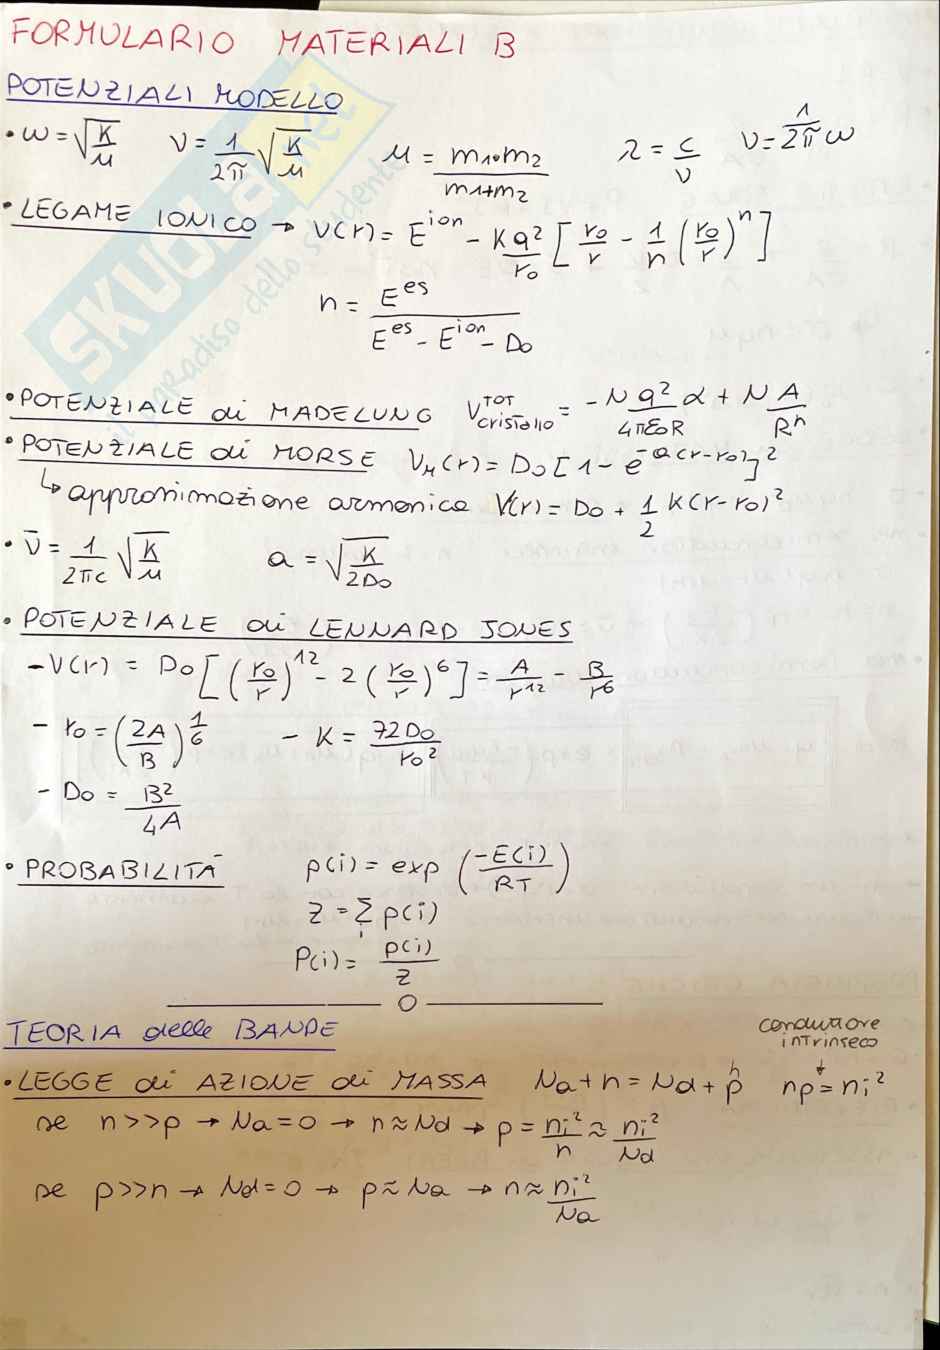 FORMULARIO MATERIALI B
POTENZIALI MODELLO
• ω = √(K/μ) ν = 1/2π √(K/μ) μ = m1·m2/m1+m2 λ = c/ν ν = 1/2π ω
• LEGAME IONICO → V(r) = E^ion - Kq²/r0 [r0/r - 1/n (r0/r)^n]
n = E^es / E^es - E^ion - D0
• POTENZIALE di MADELUNG V^TOT cristallo = -Nq²/4πε0R α + N A/R^n
• POTENZIALE di MORSE V_M(r) = D0[1 - e^-a(r-r0)]²
↳ approssimazione armonica V(r) = D0 + 1/2 K(r-r0)²
• ν̄ = 1/2πc √(K/μ) a = √(K/2D0)
• POTENZIALE di LENNARD JONES
- V(r) = D0[(r0/r)^12 - 2(r0/r)^6] = A/r^12 - B/r^6
- r0 = (2A/B)^1/6 - K = 72D0/r0²
- D0 = B²/4A
• PROBABILITÀ p(i) = exp(-E(i)/RT)
Z = Σi p(i)
P(i) = p(i)/Z
TEORIA delle BANDE
conduttore
intrinseco
• LEGGE di AZIONE di MASSA Na + n = Nd + p np = ni²
h
se n>>p → Na = 0 → n ≈ Nd → p = ni²/n ≈ ni²/Nd
se p>>n → Nd = 0 → p ≈ Na → n ≈ ni²/Na
SKUOLA.net
il paradiso dello studente